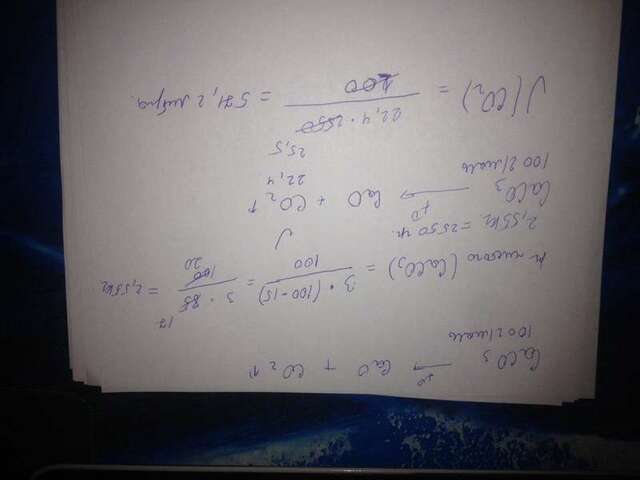 CaCO3 →t° CaO + CO2↑
100 г/моль
m чистого (CaCO3) = 3 · (100-15) / 100 = 3 · 85 17 / 100 20 = 2,55 кг
2,55 кг = 2550 гр. V
CaCO3 →t° CaO + CO2↑
100 г/моль 22,4
V(CO2) = 22,4 · 2550 25,5 / 100 = 571,2 литра.